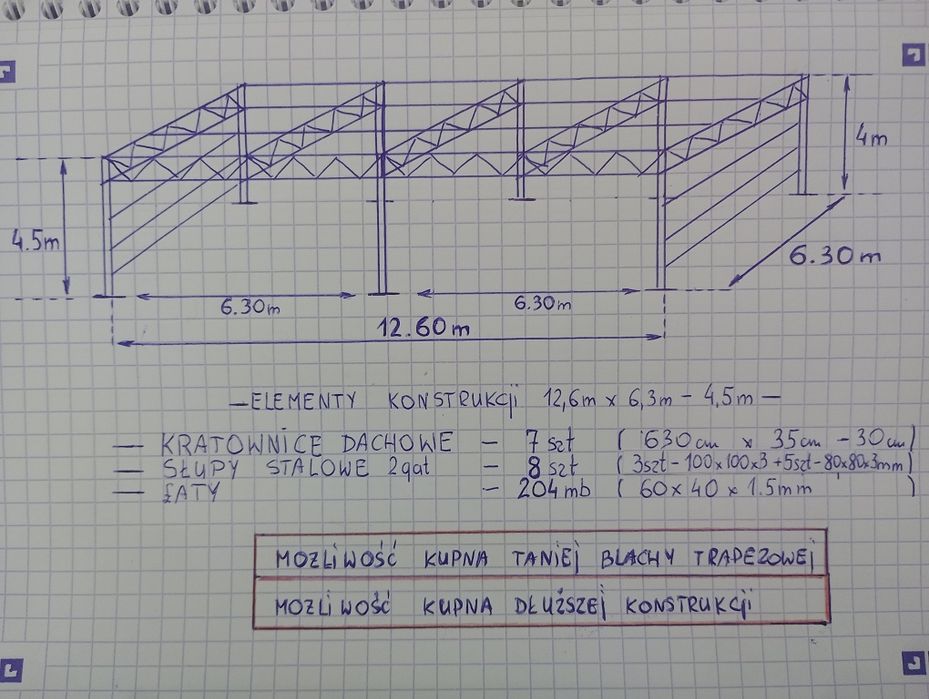 4m
4.5m
6.30m
6.30m
6.30m
12.60m
— ELEMENTY KONSTRUKCji 12,6m x 6,3m - 4,5m —
— KRATOWNICE DACHOWE - 7 szt ( 630cm x 35cm - 30cm )
— SŁUPY STALOWE 2gat - 8 szt ( 3szt - 100x100x3 + 5szt - 80x80x3mm )
— ŁATY - 204 mb ( 60 x 40 x 1.5mm )
MOŻLIWOŚĆ KUPNA TANIEJ BLACHY TRAPEZOWEJ
MOŻLIWOŚĆ KUPNA DŁUŻSZEJ KONSTRUKCji